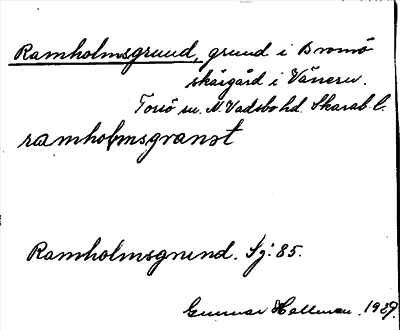 Ramholmsgrund, grund i Bromö
skärgård i Vänern.
Torsö sn. N. Vadsbo hd. Skarab. l.
ramholmsgranst
Ramholmsgrund. Sj: 85.
Gunnar Hallman. 1939.